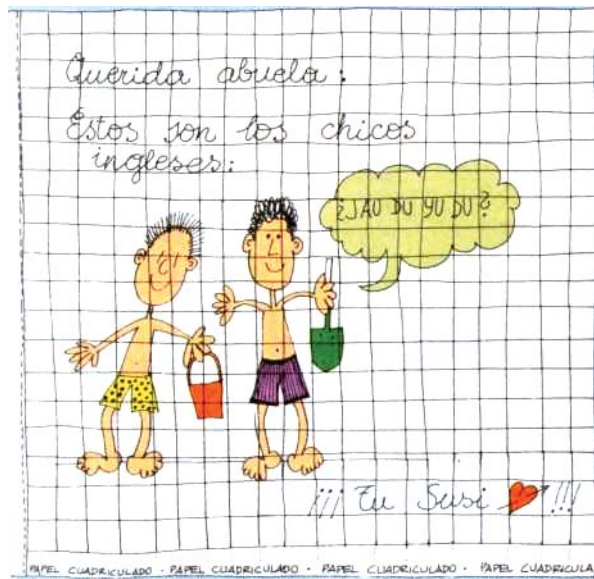 Querida abuela:
Estos son los chicos
ingleses:
¿JAU DU YU DU?
¡¡¡ Tu Susi !!!
PAPEL CUADRICULADO · PAPEL CUADRICULADO · PAPEL CUADRICULADO · PAPEL CUADRICULA